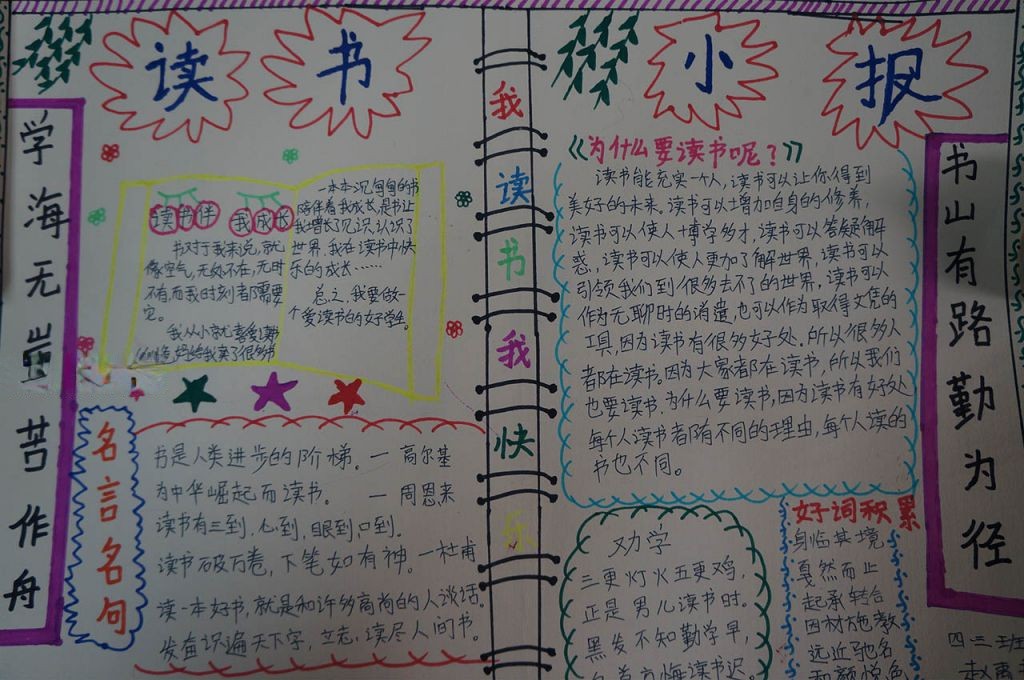 读书小报
学海无崖苦作舟
读书伴我成长
书对于我来说,就
像空气,无处不在,无时
不有,而我时刻者都需要
它。
我从小就喜爱读书
妈妈给我买了很多书
一本本沉甸甸的书
陪伴着我成长,是书让
我增长了见识,认识了
世界,我在读书中快
乐的成长……
总之,我要做一
个爱读书的好学生。
名言名句
书是人类进步的阶梯。一高尔基
为中华崛起而读书。一周恩来
读书有三到,心到,眼到,口到.
读书破万卷,下笔如有神。一杜甫
读一本好书,就是和许多高尚的人谈话。
发奋识遍天下字,立志,读尽人间书。
我读书我快乐
《为什么要读书呢?》
读书能充实一个人,读书可以让你得到
美好的未来。读书可以增加自身的修养,
读书可以使人博学多才,读书可以答疑解
惑,读书可以使人更加了解世界,读书可以
引领我们到很多去不了的世界,读书可以
作为无聊时的消遣,也可以作为取得文凭的
工具,因为读书有很多好处.所以很多人
都在读书。因为大家都在读书,所以我们
也要读书.为什么要读书,因为读书有好处
每个人读书者都有不同的理由,每个人读的
书也不同。
劝学
三更灯火五更鸡,
正是男儿读书时。
黑发不知勤学早,
白首方悔读书迟。
好词积累
身临其境
戛然而止
起承转合
因材施教
远近驰名
和颜悦色
书山有路勤为径
四三班